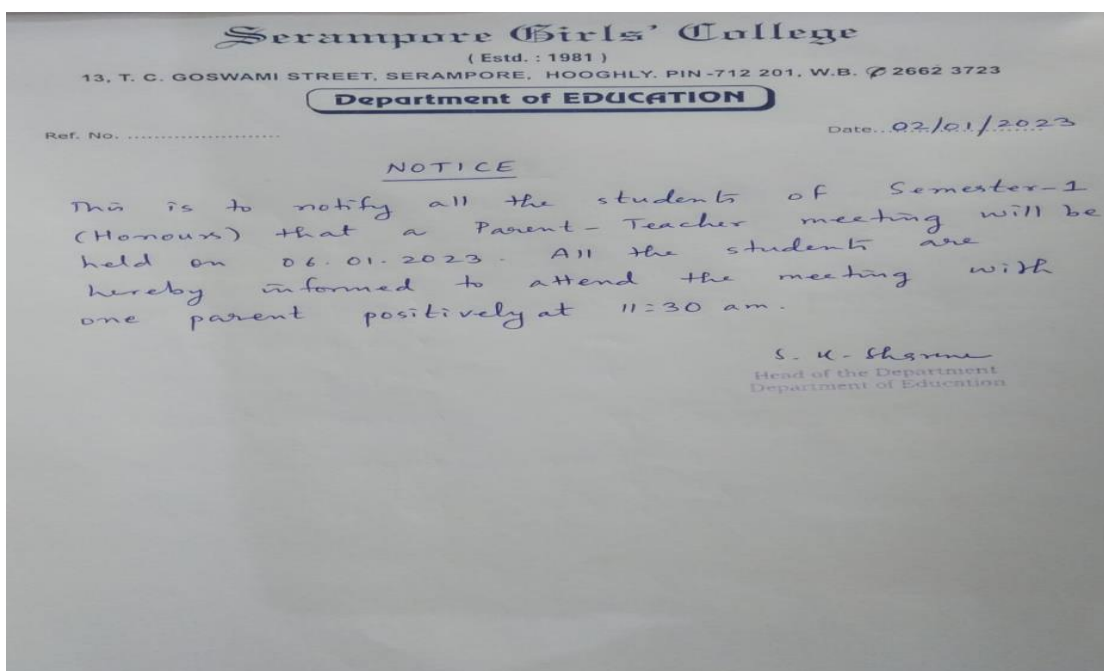 Serampore Girls' College
( Estd. : 1981 )
13, T. C. GOSWAMI STREET, SERAMPORE, HOOGHLY. PIN-712 201, W.B. ✆ 2662 3723
Department of EDUCATION
Ref. No. ........................ Date..02/01/2023
NOTICE
This is to notify all the students of Semester-1
(Honours) that a Parent-Teacher meeting will be
held on 06.01.2023. All the students are
hereby informed to attend the meeting with
one parent positively at 11:30 am.
S. K.
Head of the Department
Department of Education